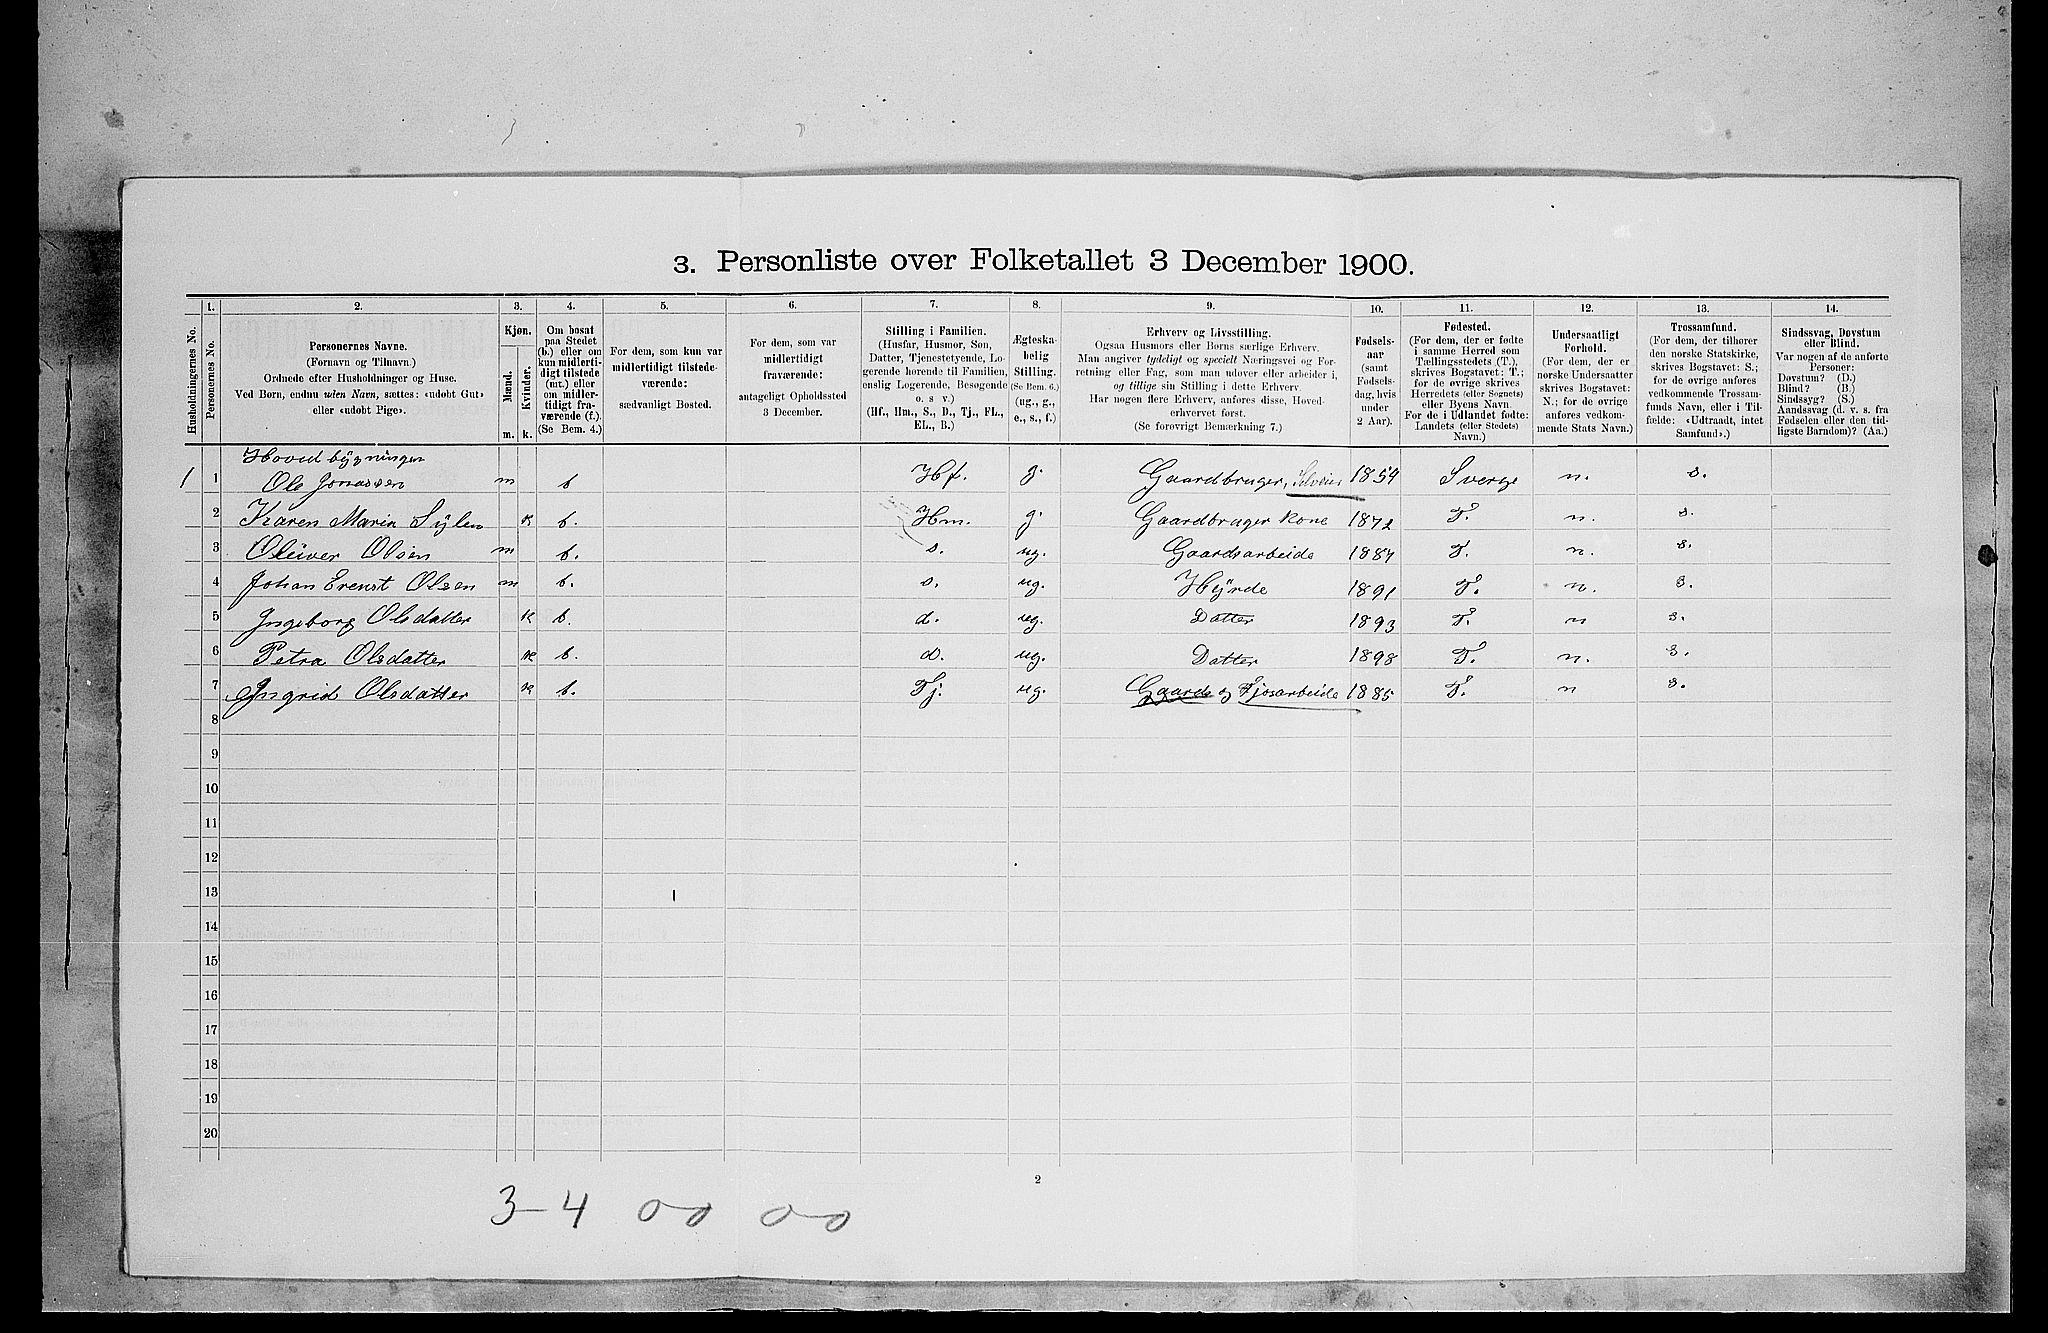 3. Personliste over Folketallet 3 December 1900.
1. 2. 3. 4. 5. 6. 7. 8. 9. 10. 11. 12. 13. 14.
Husholdningernes No.
Personernes No.
Personernes Navne.
(Fornavn og Tilnavn.)
Ordnede efter Husholdninger og Huse.
Ved Børn, endnu uden Navn, sættes: «udøbt Gut»
eller «udøbt Pige».
Kjøn.
Mænd.
Kvinder.
m. k.
Om bosat
paa Stedet
(b.) eller om
kun midler-
tidigt tilstede
(mt.) eller
om midler-
tidigt fra-
værende (f.).
(Se Bem. 4.)
For dem, som kun var
midlertidigt tilstede-
værende:
sædvanligt Bosted.
For dem, som var
midlertidigt
fraværende:
antageligt Opholdssted
3 December.
Stilling i Familien.
(Husfar, Husmor, Søn,
Datter, Tjenestetyende, Lo-
gerende hørende til Familien,
enslig Logerende, Besøgende
o. s. v.)
(Hf., Hm., S., D., Tj., FL.,
EL., B.)
Ægteska-
belig
Stilling.
(Se Bem. 6.)
(ug., g.,
e., s., f.)
Erhverv og Livsstilling.
Ogsaa Husmors eller Børns særlige Erhverv.
Man angiver tydeligt og specielt Næringsvei og For-
retning eller Fag, som man udøver eller arbeider i,
og tillige sin Stilling i dette Erhverv.
Har nogen flere Erhverv, anføres disse, Hoved-
erhvervet først.
(Se forøvrigt Bemærkning 7.)
Fødsels-
aar
(samt
Fødsels-
dag, hvis
under
2 Aar).
Fødested.
(For dem, der er fødte
i samme Herred som
Tællingsstedets (T.),
skrives Bogstavet: T.;
for de øvrige skrives
Herredets (eller Sognets)
eller Byens Navn.
For de i Udlandet fødte:
Landets (eller Stedets)
Navn.)
Undersaatligt
Forhold.
(For dem, der er
norske Undersaatter
skrives Bogstavet:
N.; for de øvrige
anføres vedkom-
mende Stats Navn.)
Trossamfund.
(For dem, der tilhører
den norske Statskirke,
skrives Bogstavet: S.;
for de øvrige anføres
vedkommende Trossam-
funds Navn, eller i Til-
fælde: «Udtraadt, intet
Samfund».)
Sindssvag, Døvstum
eller Blind.
Var nogen af de anførte
Personer:
Døvstum? (D.)
Blind? (B.)
Sindssyg? (S.)
Aandssvag (d. v. s. fra
Fødselen eller den tid-
ligste Barndom)? (Aa.)
Hovedbygningen
1 1 Ole Jonassen m b Hf. g. Gaardbruger, Selveier 1859 Sverge n. s.
2 Karen Marin k b. Hm. g. Gaardbruger kone 1872 T. n. s.
3 Oleiver Olsen m b. s. ug. Gaardsarbeide 1887 T. n. s.
4 Johan Erenst Olsen m b. s. ug. Hyrde 1891 T. n. s.
5 Ingeborg Olsdatter k b. d. ug. Datter 1893 T. n s.
6 Petra Olsdatter k b. d. ug. Datter 1898 T. n. s.
7 Ingrid Olsdatter k b. Tj. ug. Gaards og Fjøsarbeide 1885 T. n s.
8
9
10
11
12
13
14
15
16
17
18
19
20
2
3-4 00 00